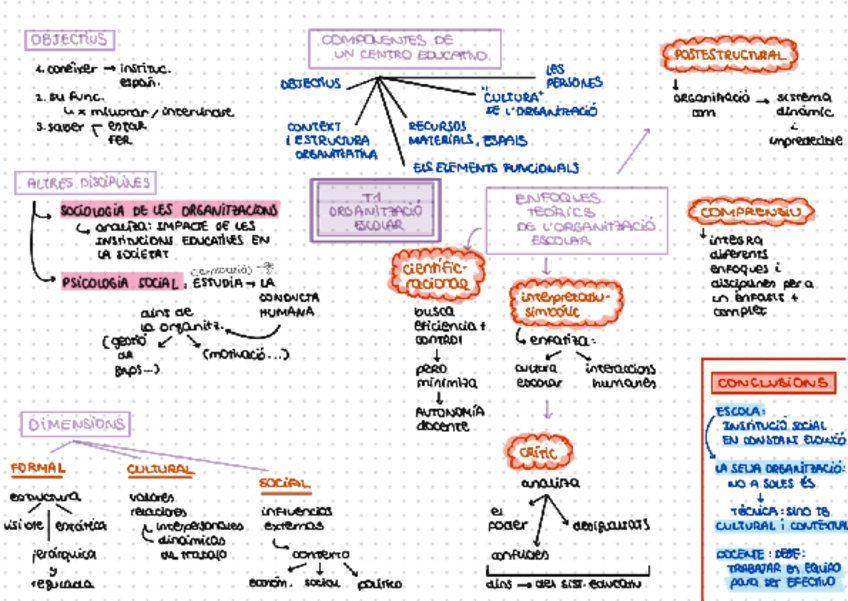 OBJECTIUS
1. conèixer → instituc.
españ.
2. su func.
↳ x millorar /
3. saber estar
FER
COMPONENTES DE
UN CENTRO EDUCATIVO.
OBJECTIUS
LES
PERSONES
"CULTURA"
DE L'ORGANITZACIÓ
CONTEXT
I ESTRUCTURA
ORGANITZATIVA
RECURSOS
MATERIALS, ESPAIS
ELS ELEMENTS FUNCIONALS
POSTESTRUCTURAL
ORGANITZACIÓ → sistema
com dinàmic
i
impredecible
ALTRES DISCIPLINES
SOCIOLOGIA DE LES ORGANITZACIONS
↳ analitza: IMPACTE DE LES
INSTITUCIONS EDUCATIVES EN
LA SOCIETAT
PSICOLOGIA SOCIAL: ESTUDIA → LA
CONDUCTA
HUMANA
dins de
la organitz.
(gestió
(motivació...)
T1
ORGANITZACIÓ
ESCOLAR
ENFOQUES
TEÒRICS
DE L'ORGANITZACIÓ
ESCOLAR
COMPRENSIU
integra
diferents
enfoques i
disciplines per a
un enfasis +
complet
científic-
racional
busca
eficiencia +
control
↓
pero
minimiza
↓
AUTONOMÍA
docente
interpretatiu-
simbòlic
↳ enfatiza:
cultura
escolar
interaccions
humanes
CRÍTIC
analitza
el
poder
desigualtats
conflictes
dins → del sist. educatiu
DIMENSIONS
FORMAL
estructura
visible | estática
jerárquica
y
regulada
CULTURAL
valores
relaciones
↳ interpersonales
↳ dinámicas
de trabajo
SOCIAL
influencias
externas
↳ contexto
económ. social político
CONCLUSIONS
ESCOLA:
INSTITUCIÓ SOCIAL
EN CONSTANT EVOLUCIÓ
LA SEUA ORGANITZACIÓ:
NO A SOLES ÉS
↓
TÈCNICA: SINO TB
CULTURAL I CONTEXTUAL
DOCENTE: DEBE:
TRABAJAR en EQUIPO
para ser EFECTIVO